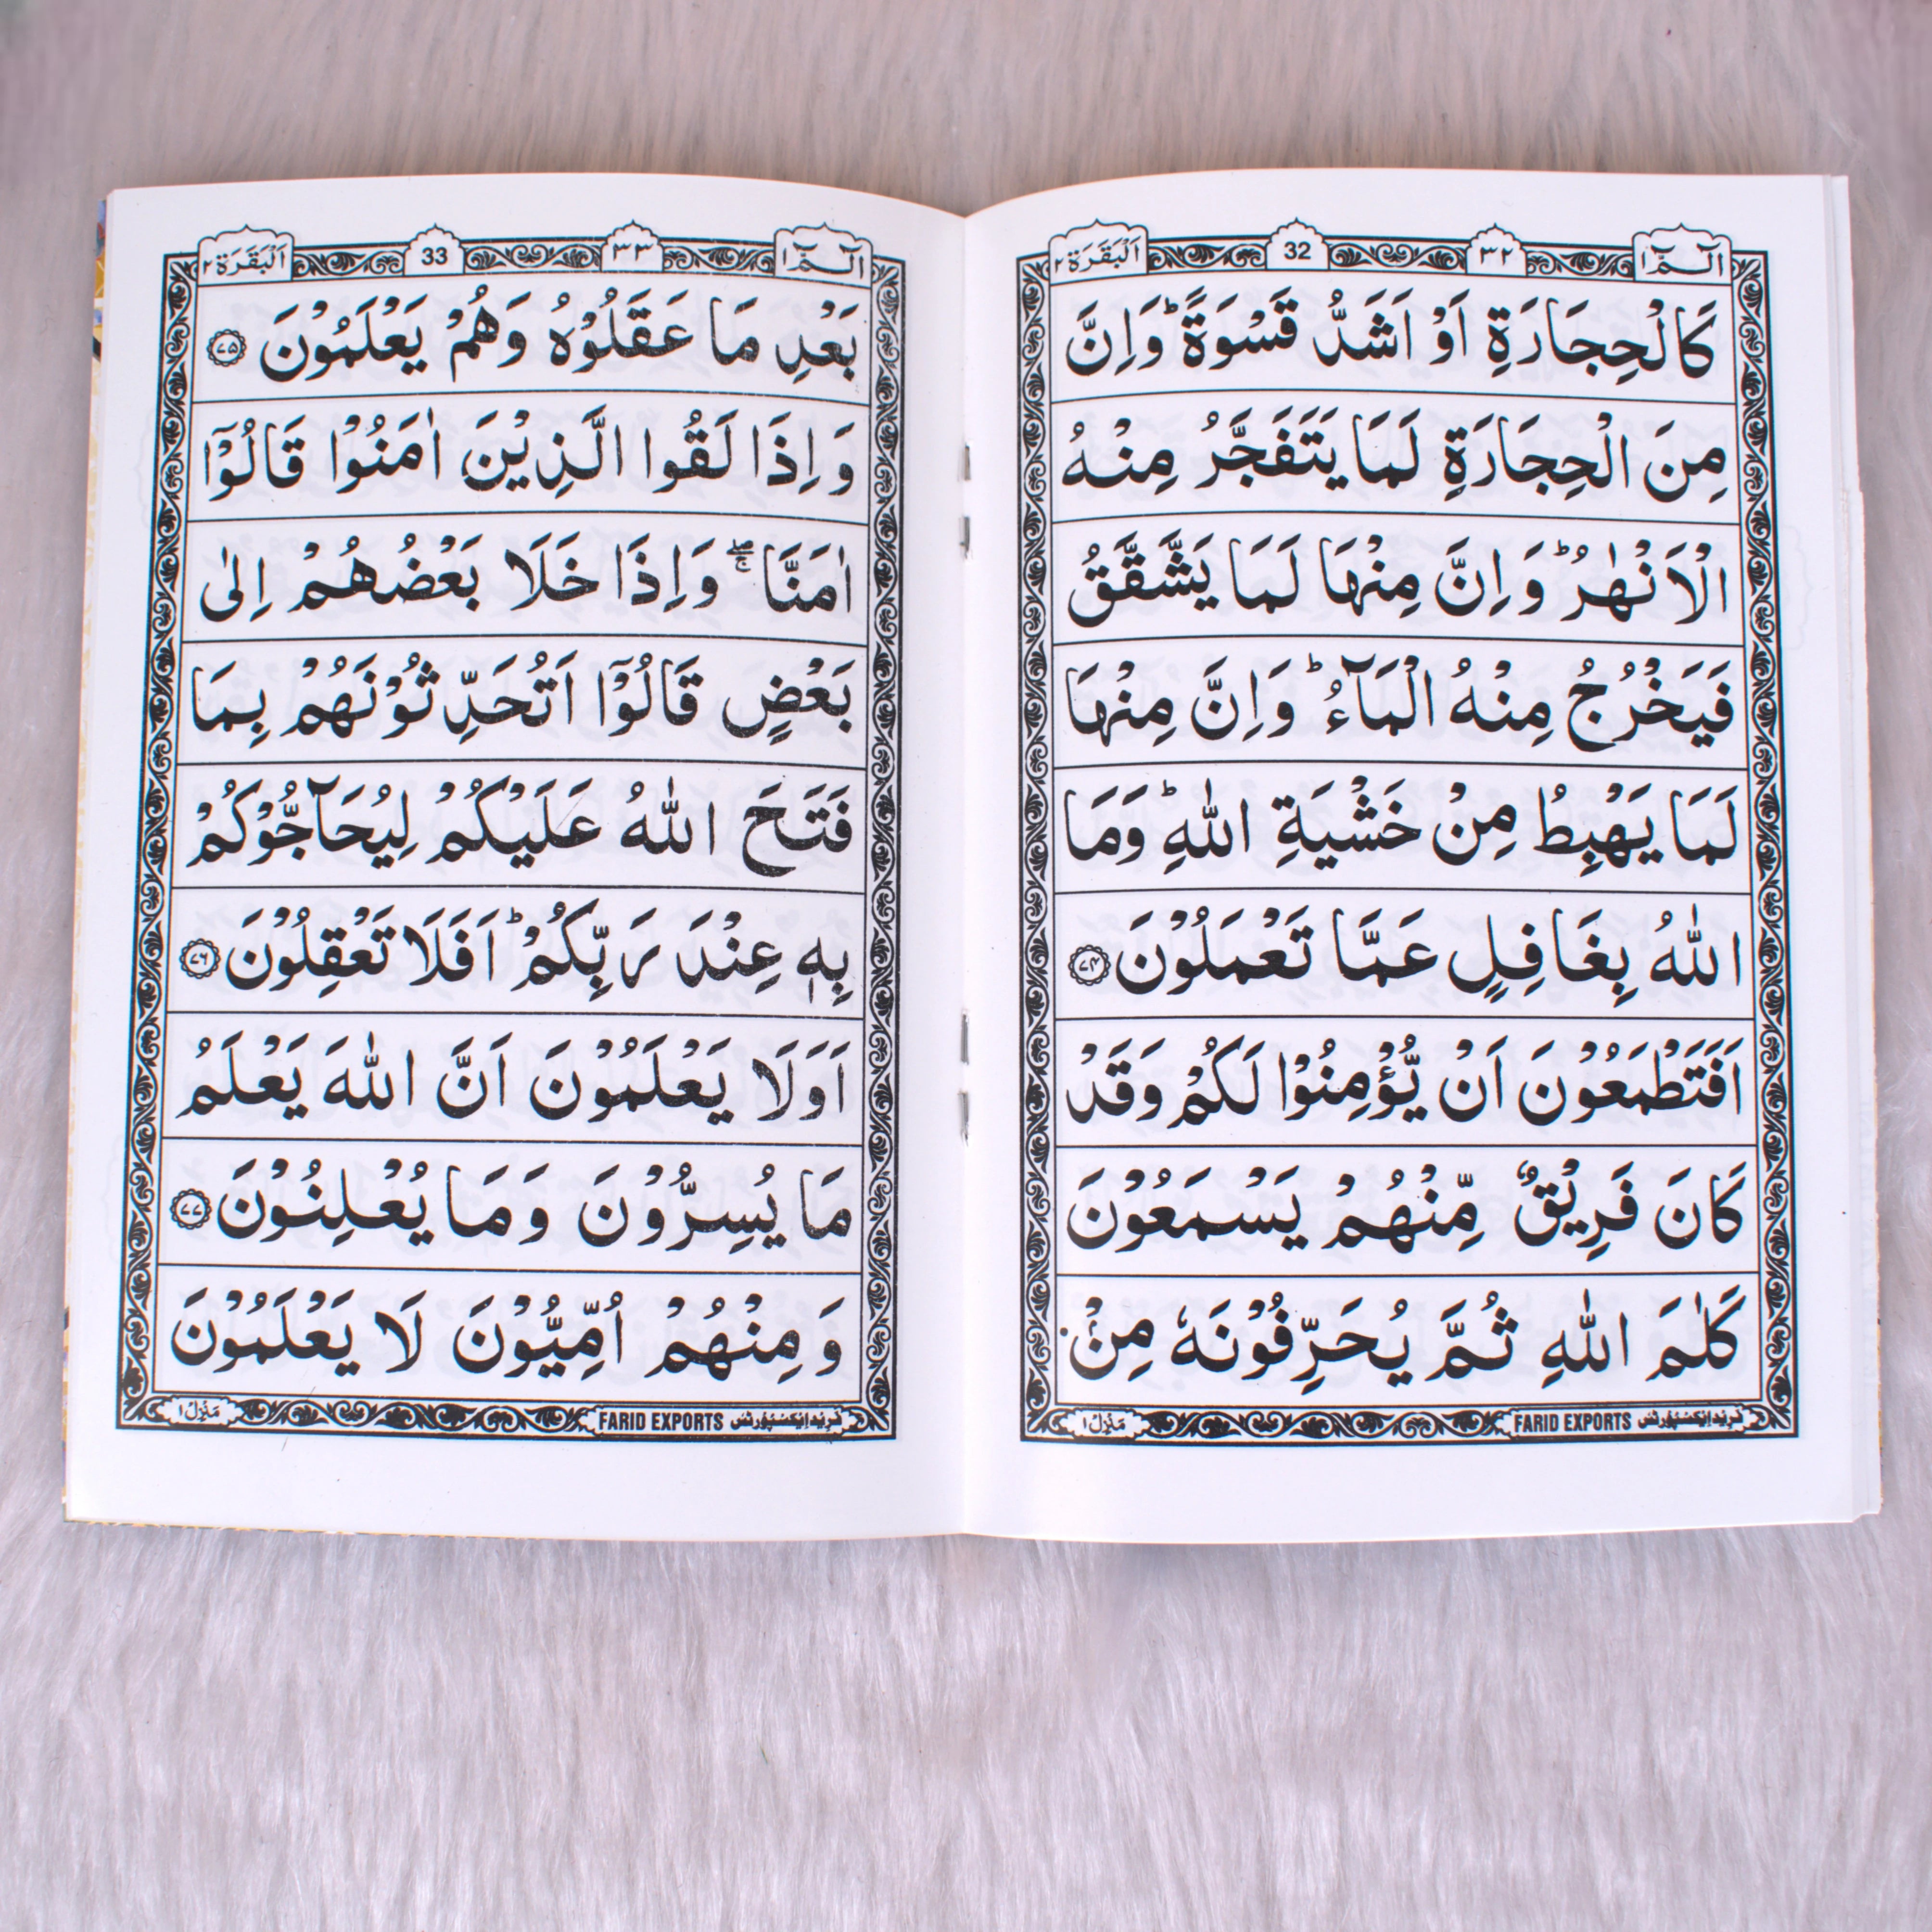 الٓمّٓ ۱
۳۲
32
اَلْبَقَرَة ۲
كَالْحِجَارَةِ اَوْ اَشَدُّ قَسْوَةً ؕ وَاِنَّ
مِنَ الْحِجَارَةِ لَمَا يَتَفَجَّرُ مِنْهُ
الْاَنْهٰرُ ؕ وَاِنَّ مِنْهَا لَمَا يَشَّقَّقُ
فَيَخْرُجُ مِنْهُ الْمَآءُ ؕ وَاِنَّ مِنْهَا
لَمَا يَهْبِطُ مِنْ خَشْيَةِ اللّٰهِ ؕ وَمَا
اللّٰهُ بِغَافِلٍ عَمَّا تَعْمَلُوْنَ ۷۴
اَفَتَطْمَعُوْنَ اَنْ يُّؤْمِنُوْا لَكُمْ وَقَدْ
كَانَ فَرِيْقٌ مِّنْهُمْ يَسْمَعُوْنَ
كَلٰمَ اللّٰهِ ثُمَّ يُحَرِّفُوْنَهٗ مِنْۢ
فرید ایکسپورٹس FARID EXPORTS
مَنْزِل ۱
الٓمّٓ ۱
۳۳
33
اَلْبَقَرَة ۲
بَعْدِ مَا عَقَلُوْهُ وَهُمْ يَعْلَمُوْنَ ۷۵
وَ اِذَا لَقُوا الَّذِيْنَ اٰمَنُوْا قَالُوْٓا
اٰمَنَّا ۖۚ وَاِذَا خَلَا بَعْضُهُمْ اِلٰى
بَعْضٍ قَالُوْٓا اَتُحَدِّثُوْنَهُمْ بِمَا
فَتَحَ اللّٰهُ عَلَيْكُمْ لِيُحَآجُّوْكُمْ
بِهٖ عِنْدَ رَبِّكُمْ ؕ اَفَلَا تَعْقِلُوْنَ ۷۶
اَوَلَا يَعْلَمُوْنَ اَنَّ اللّٰهَ يَعْلَمُ
مَا يُسِرُّوْنَ وَمَا يُعْلِنُوْنَ ۷۷
وَمِنْهُمْ اُمِّيُّوْنَ لَا يَعْلَمُوْنَ
فرید ایکسپورٹس FARID EXPORTS
مَنْزِل ۱